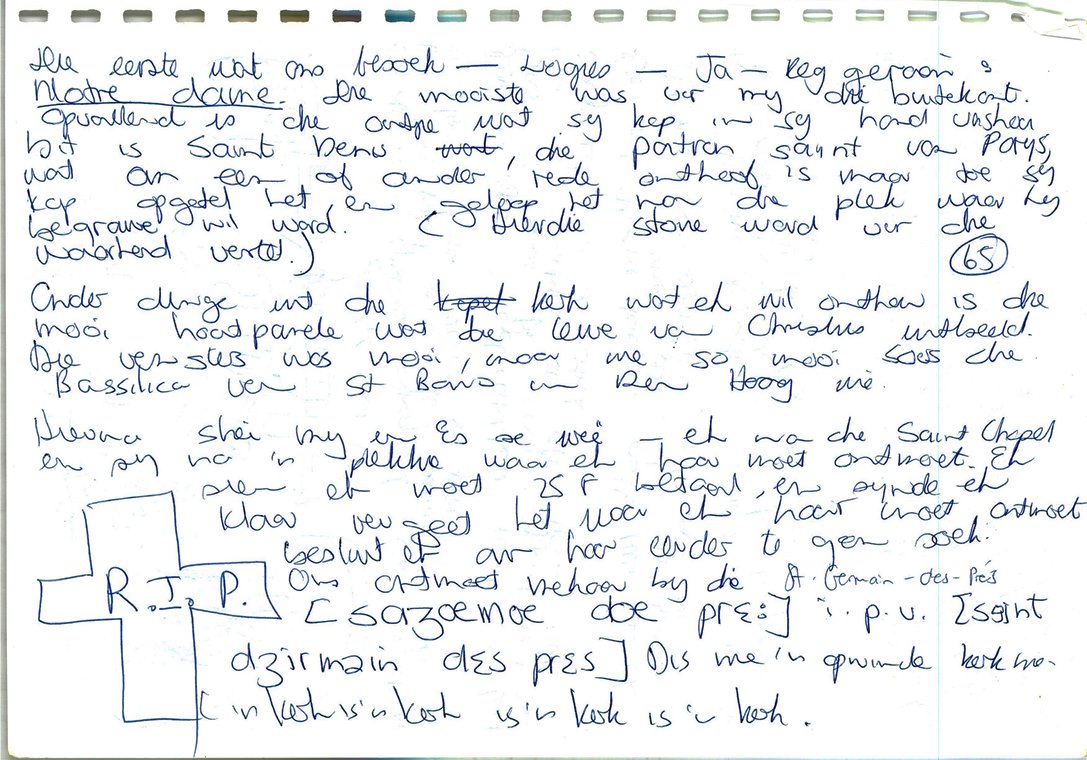 Die eerste wat ons besoek — — Ja — Reg geraai:
Notre dame. Die mooiste was vir my die buitekant.
Opvallend is die ou wat sy kop in sy hand vashou
Dit is Saint Denis wat, die patron saint van Parys,
wat om een of ander rede onthoof is maar toe sy
kop opgetel het en geloop het na die plek waar hy
begrawe wil word. (Hierdie storie word vir die
waarheid vertel.)
65
Ander dinge uit die kapel kerk wat ek wil onthou is die
mooi houtpanele wat die lewe van Christus uitbeeld.
Die vensters was mooi, maar nie so mooi soos die
Bassilica van St Bavo in Den Haag nie.
Hierna skei my en Es se weë — ek na die Saint Chapel
en sy na 'n plekkie waar ek haar moet ontmoet. Ek
sien ek moet 25 F betaal, en synde ek
klaar vergeet het waar ek haar moet ontmoet
besluit ek om haar eerder te gaan soek.
Ons ontmoet mekaar by die St. Germain-des-Prés
[sazoemoe doe prɛ:] i.p.v. [seint
dzirmain dɛs pres] Dis nie 'n opwindende kerk nie.
('n kerk is 'n kerk is 'n kerk is 'n kerk.
R.I.P.